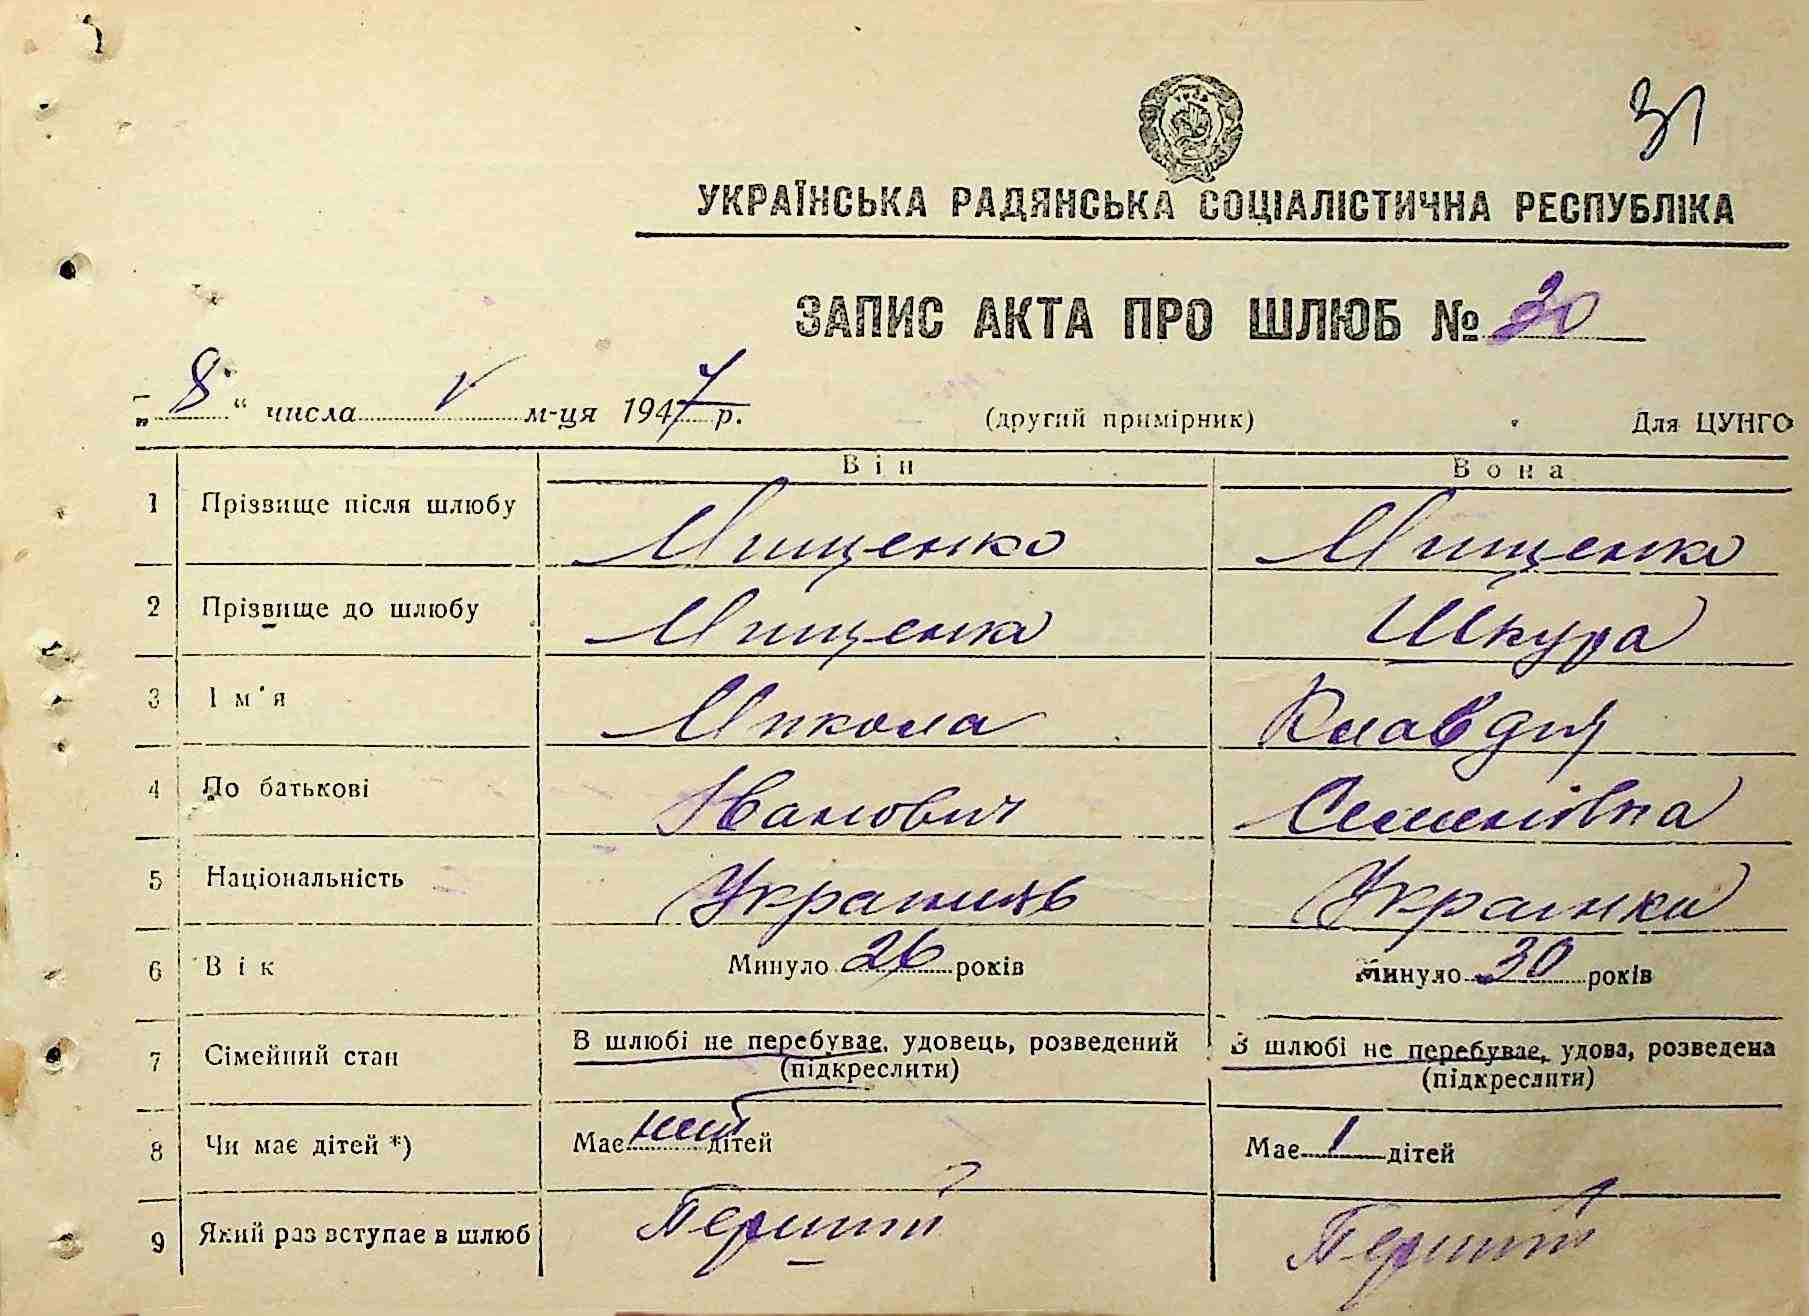 31
УКРАЇНСЬКА РАДЯНСЬКА СОЦІАЛІСТИЧНА РЕСПУБЛІКА
ЗАПИС АКТА ПРО ШЛЮБ № 30
„8“ числа V м-ця 1947 р. (другий примірник) Для ЦУНГО
Він Вона
1 Прізвище після шлюбу Мищенко Мищенко
2 Прізвище до шлюбу Мищенко Шкура
3 Ім'я Микола Клавдия
4 По батькові Иванович Семенівна
5 Національність Украинец Украинка
6 Вік Минуло 26 років Минуло 30 років
7 Сімейний стан В шлюбі не перебуває, удовець, розведений В шлюбі не перебуває, удова, розведена
(підкреслити) (підкреслити)
8 Чи має дітей *) Має дітей Має 1 дітей
9 Який раз вступає в шлюб Перший Перший